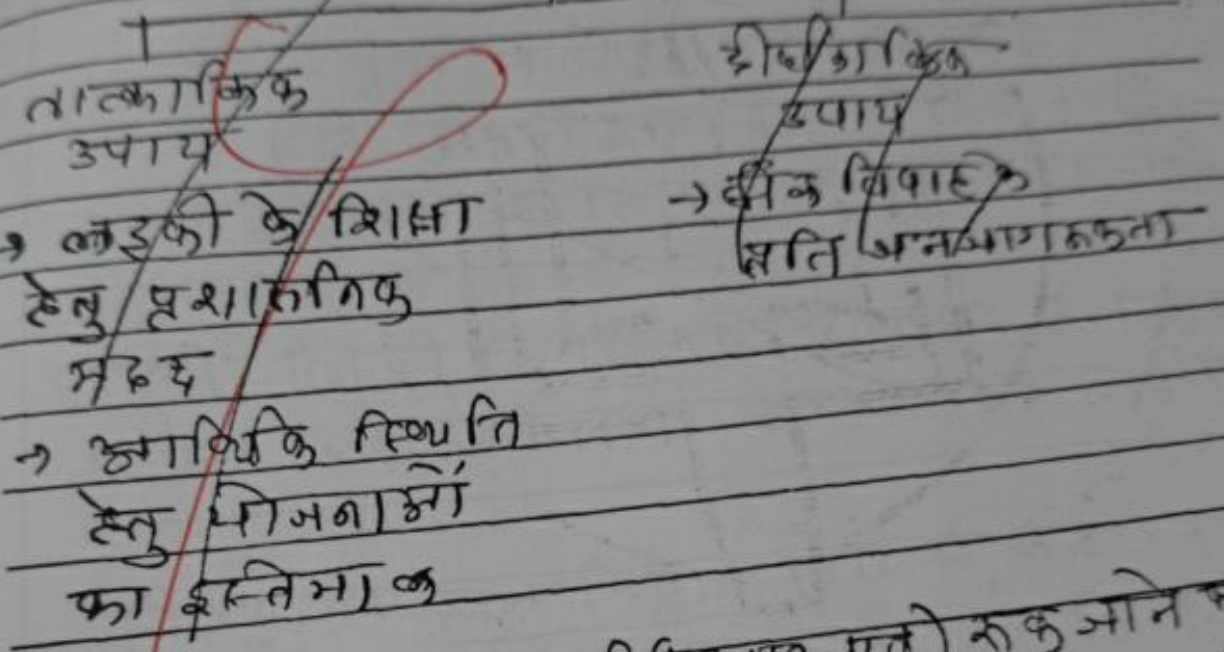 तात्कालिक
उपाय
→ लड़की के शिक्षा
हेतु प्रशासनिक
मदद
→ आर्थिक स्थिति
हेतु योजनाओं
का इस्तिमाल
दीर्घकालिक
उपाय
→ विवाह के
प्रति जनजागरुकता
रुक जाने